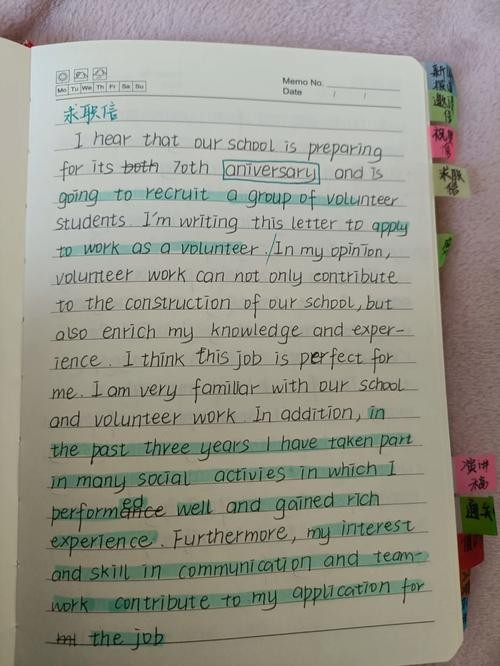 Mo Tu We Th Fr Sa Su
Memo No.
Date / /
求职信
I hear that our school is preparing
for its both 70th aniversary and is
going to recruit a group of volunteer
students. I'm writing this letter to apply
to work as a volunteer. / In my opinion,
volunteer work can not only contribute
to the construction of our school, but
also enrich my knowledge and exper-
ience. I think this job is perfect for
me. I am very familiar with our school
and volunteer work. In addition, in
the past three years I have taken part
in many social activies in which I
performanceed well and gained rich
experience. Furthermore, my interest
and skill in communication and team-
work contribute to my application for
the job
求职
信
演讲
稿
通知